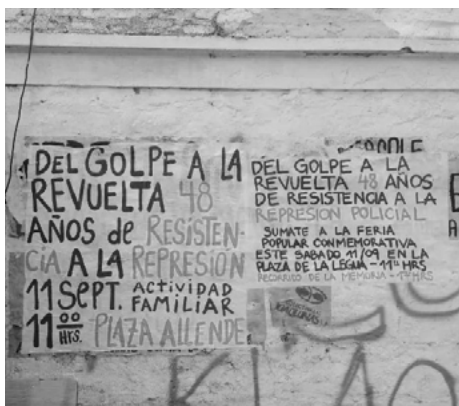 DEL GOLPE A LA
REVUELTA 48
AÑOS de RESISTEN-
CIA A LA REPRESIÓN
11 SEPT. ACTIVIDAD
FAMILIAR
11 00 HRS. PLAZA ALLENDE
DEL GOLPE A LA
REVUELTA 48 AÑOS
DE RESISTENCIA A LA
REPRESION POLICIAL
SUMATE A LA FERIA
POPULAR CONMEMORATIVA
ESTE SABADO 11/09 EN LA
PLAZA DE LA LEGUA - 11 HRS
RECORRIDO DE LA MEMORIA - 17 HRS